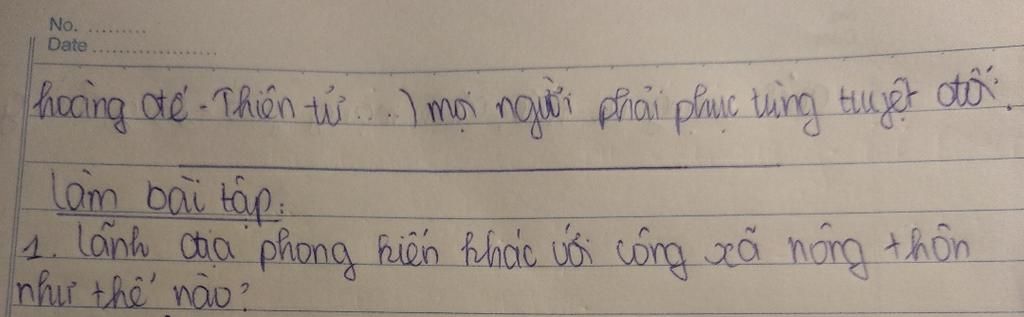 No. .........
Date ....................
hoàng đế - Thiên tử ...) mọi người phải phục tùng tuyệt đối.
Làm bài tập:
1. Lãnh địa phong kiến khác với công xã nông thôn
như thế nào?